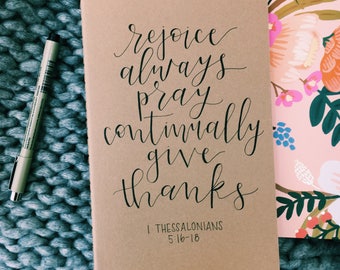 rejoice
always
pray
continually
give
thanks
1 THESSALONIANS
5:16-18